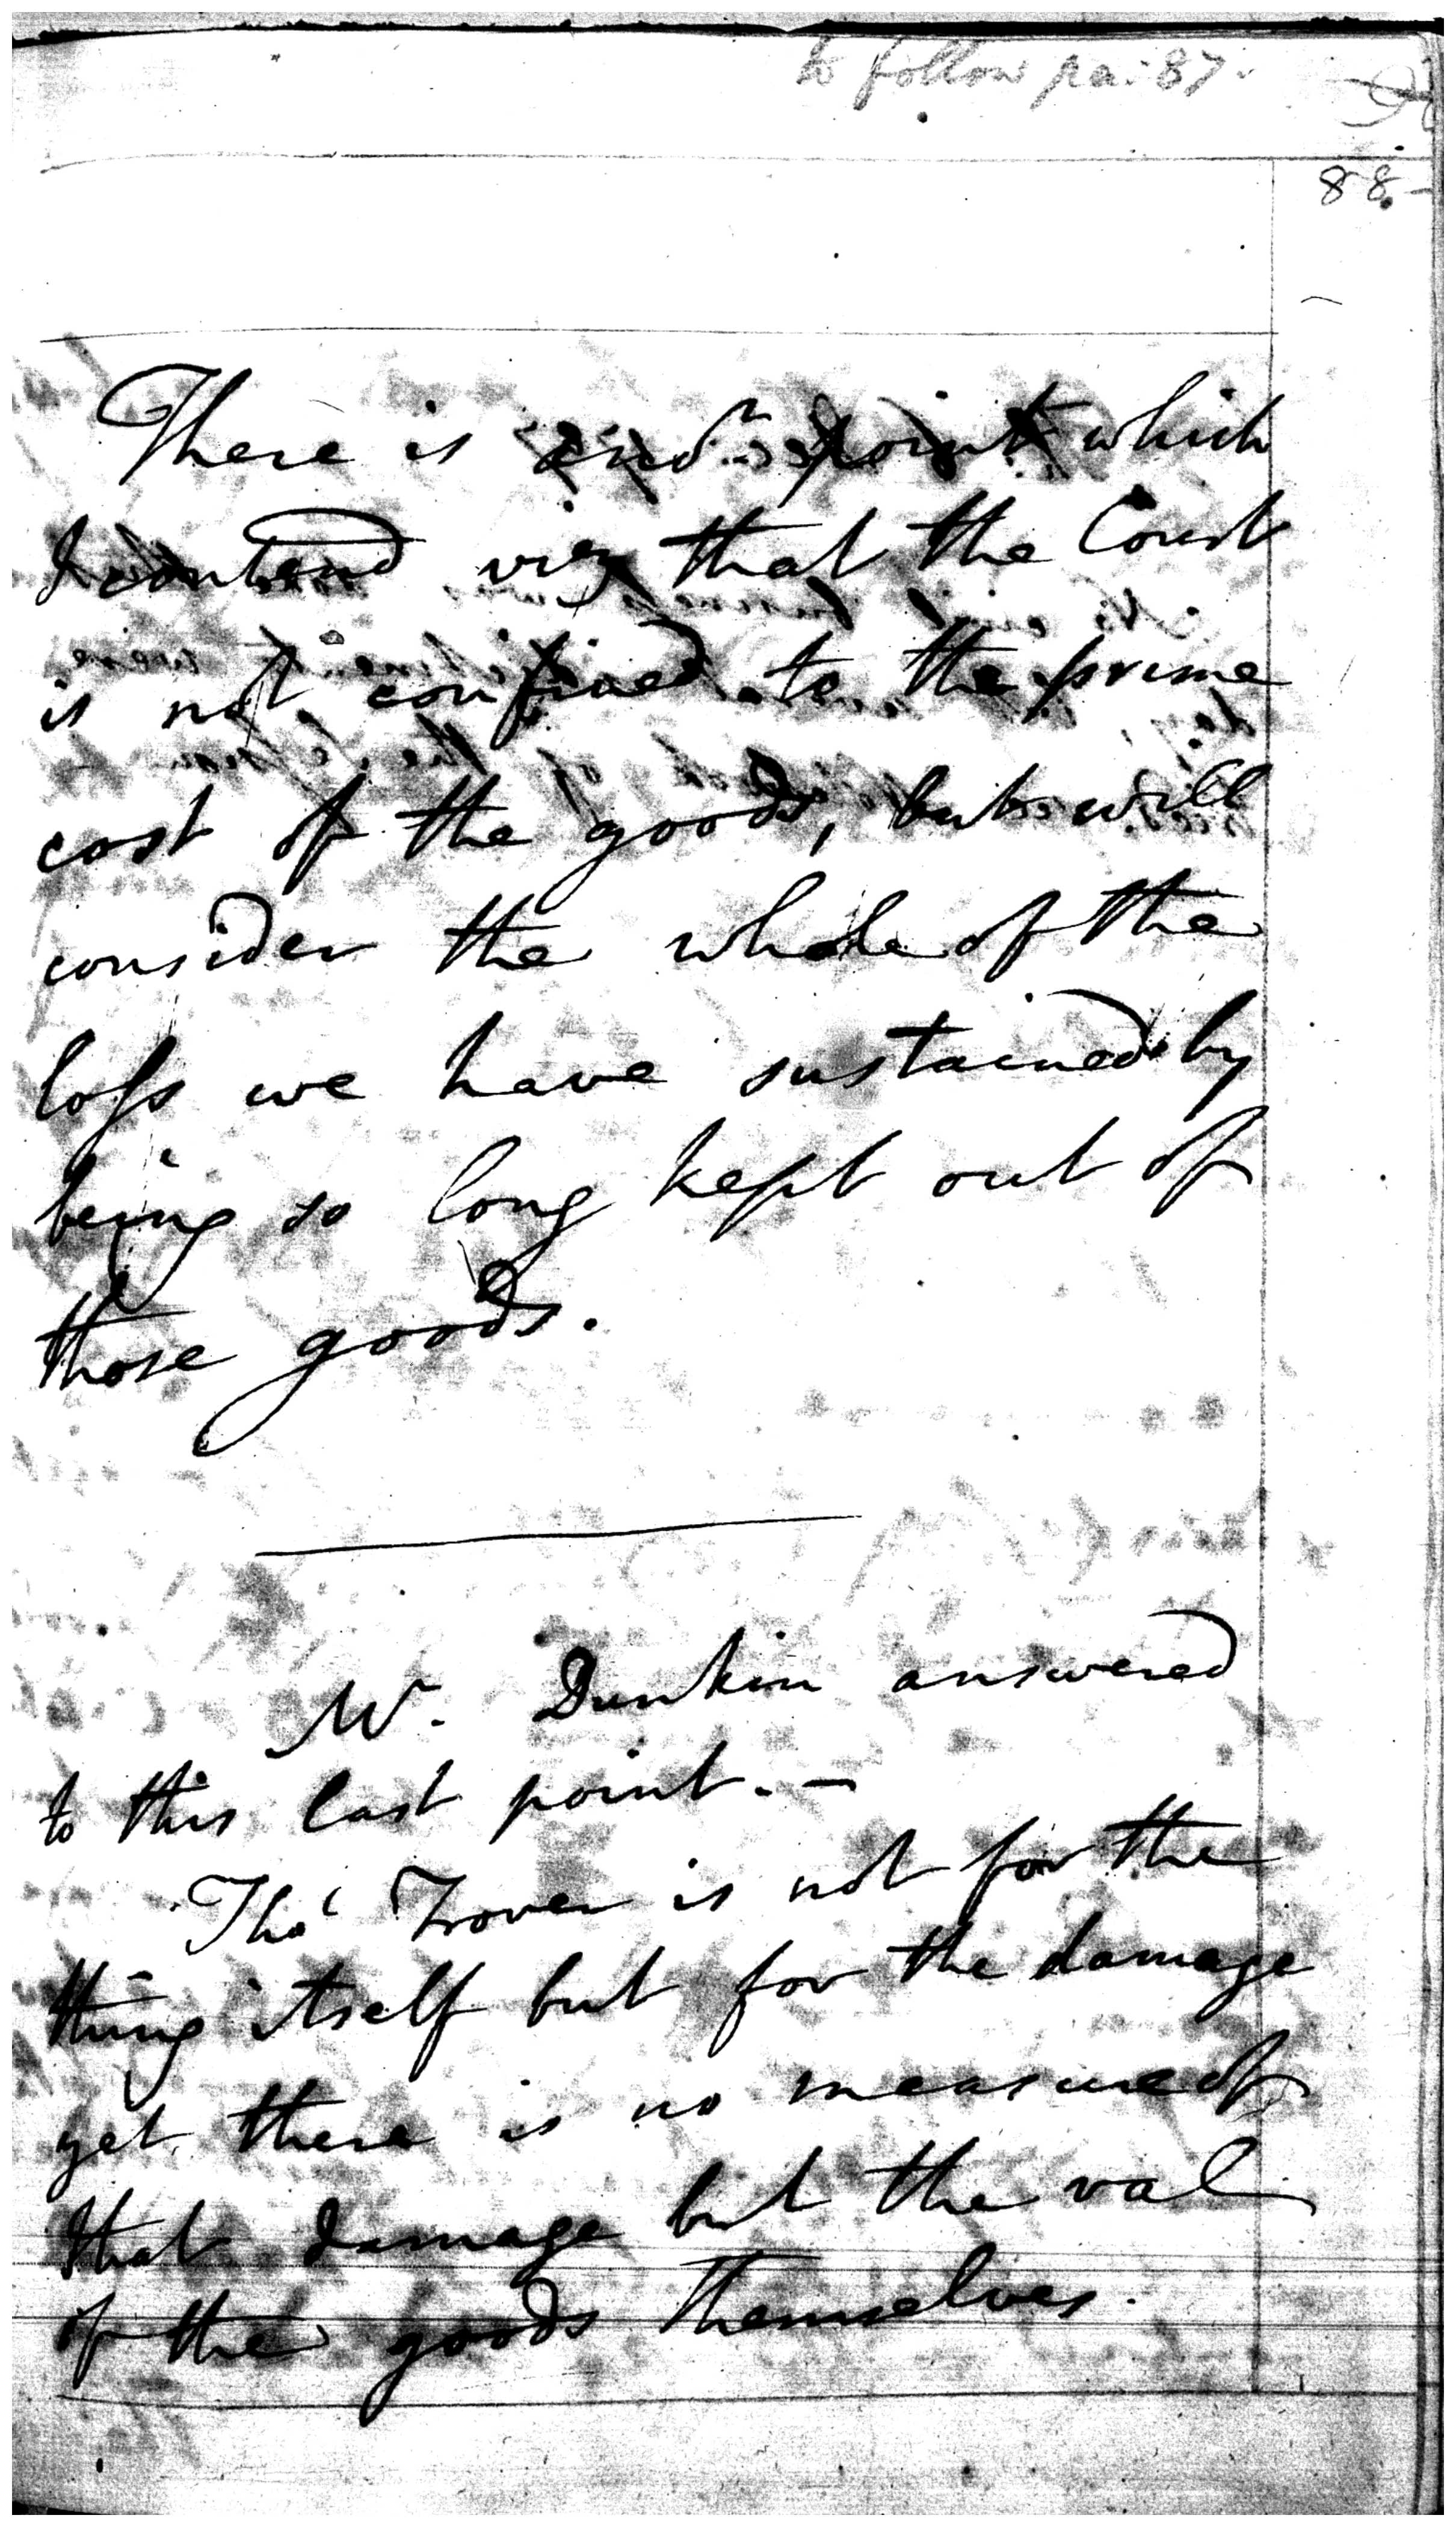 to follow pa: 87.
88
There is and.r point which
I contend viz that the Court
is not confined to the prime
cost of the goods, but will
consider the whole of the
loss we have sustained by
being so long kept out of
those goods.
Mr. Dunkin answered
to this last point. —
Tho' Trover is not for the
thing itself but for the damage
yet there is no measure of
that damage but the val
of the goods themselves.